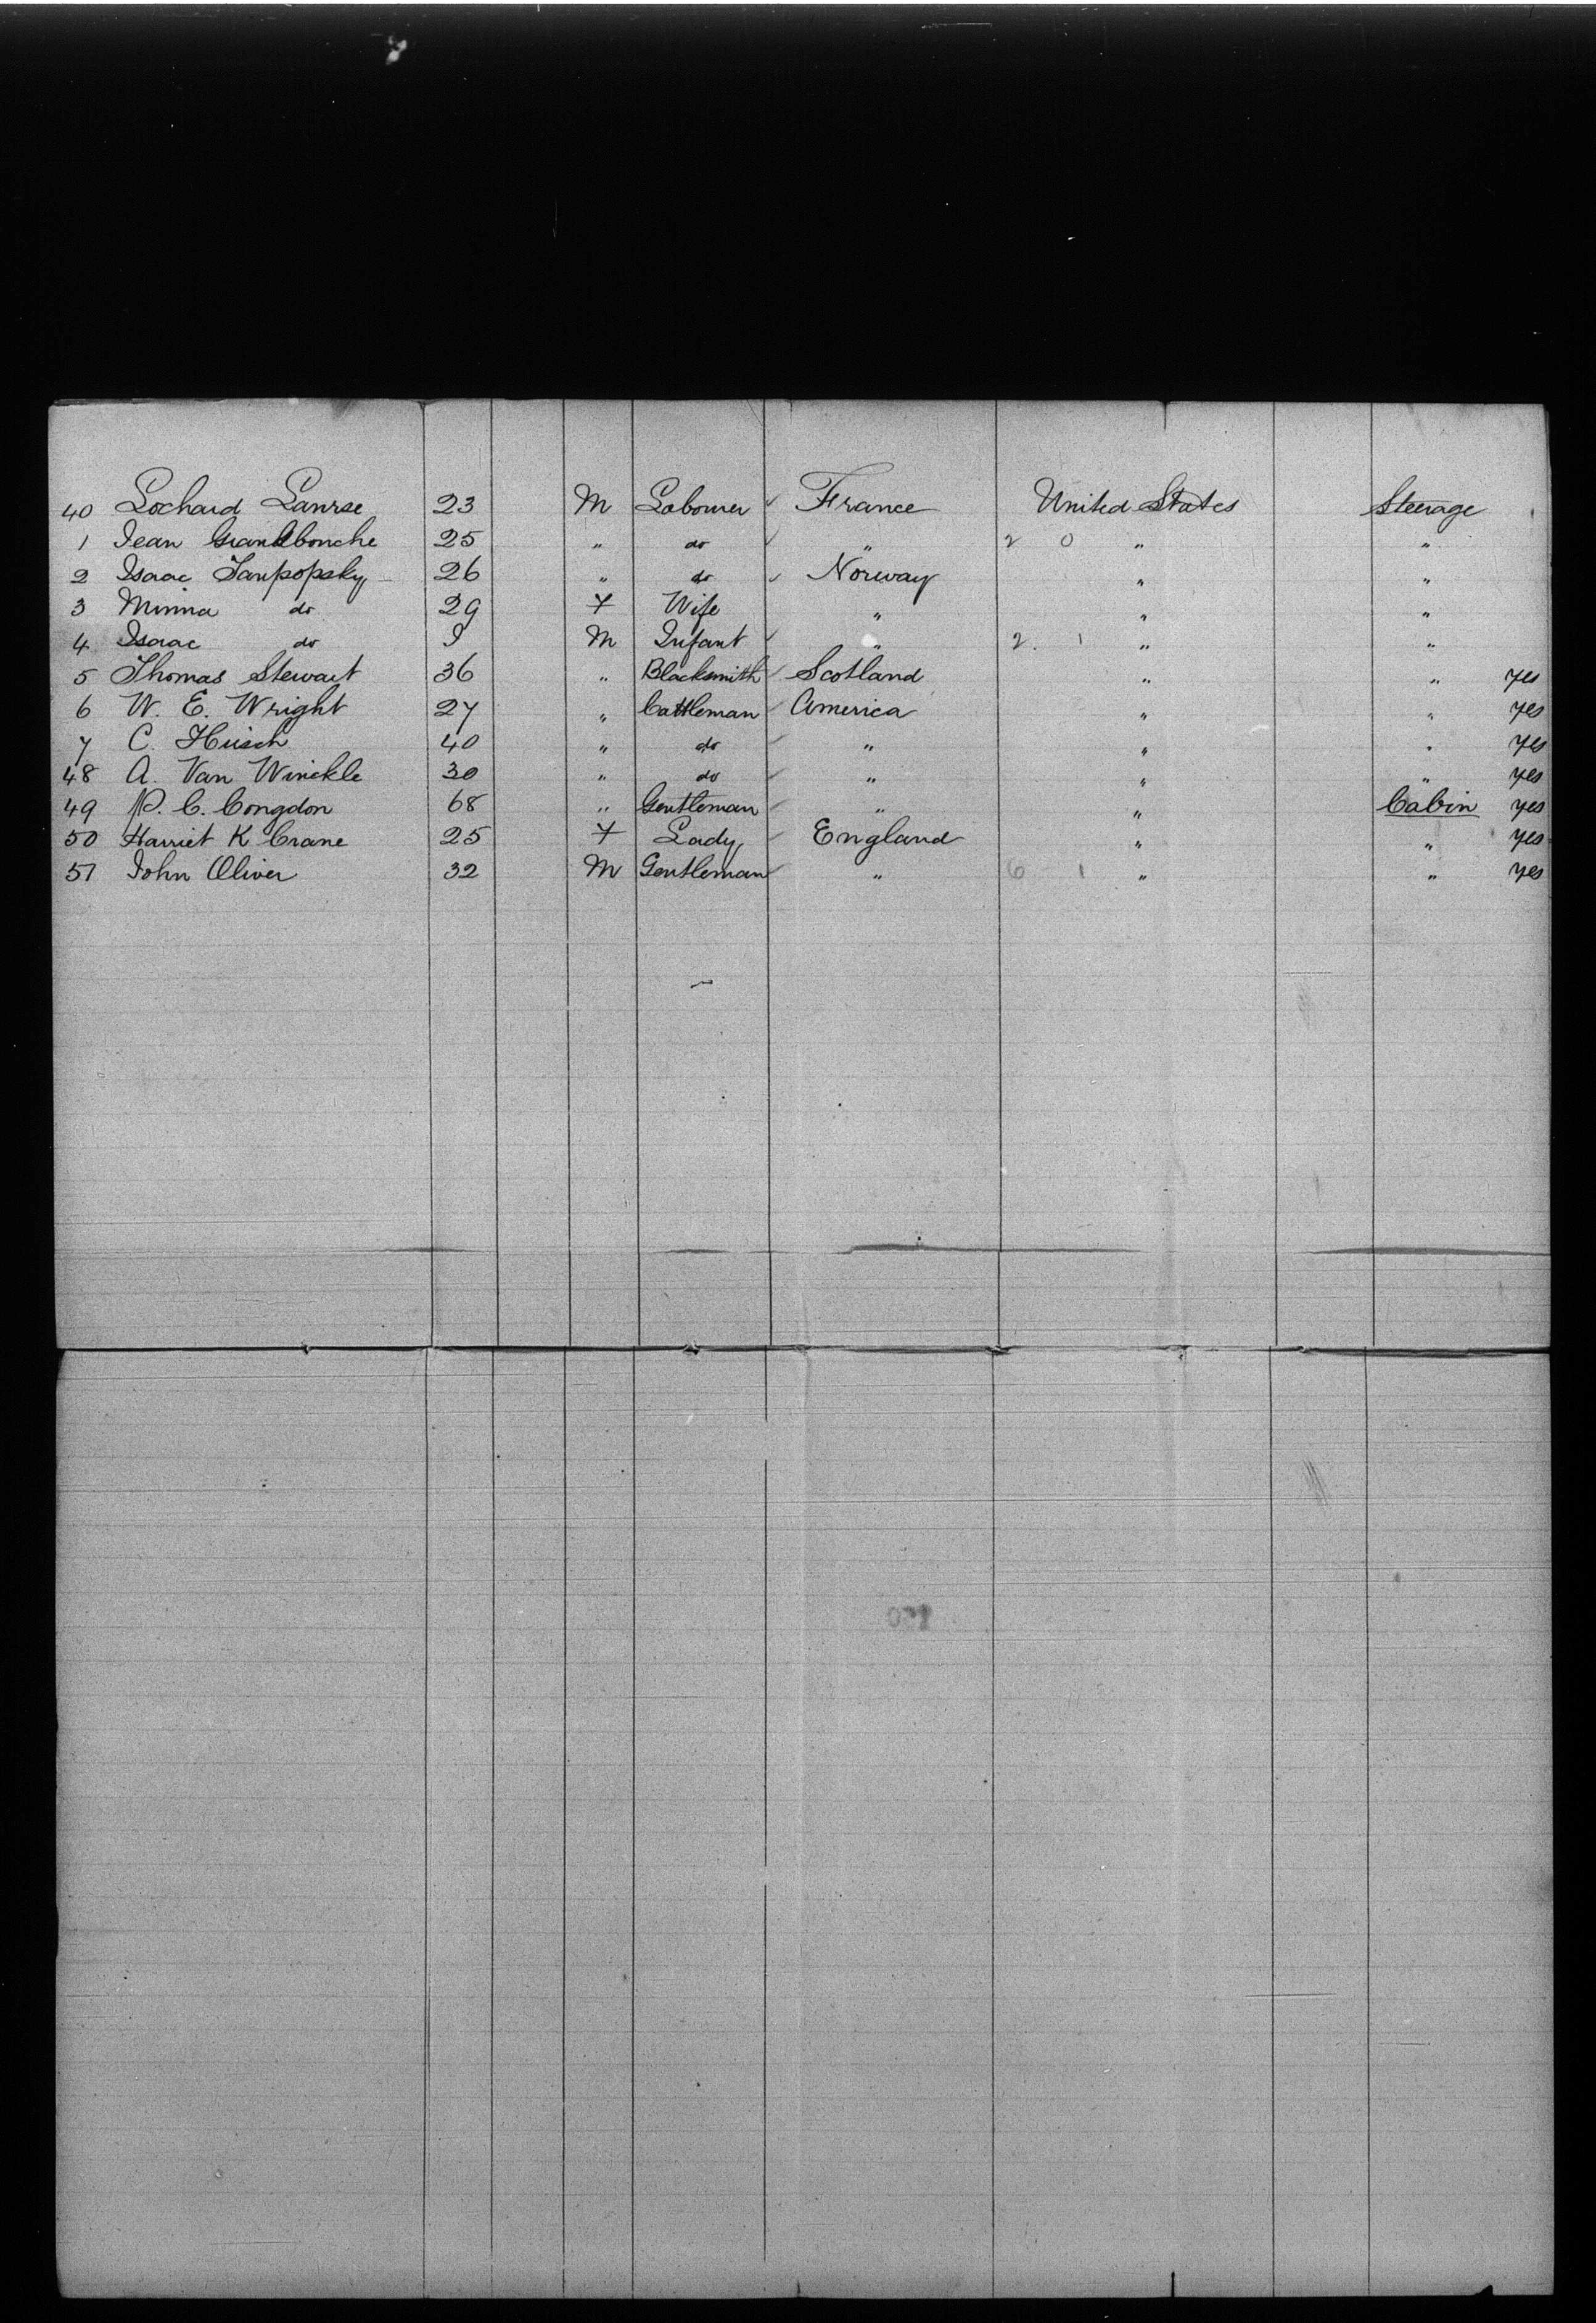 40 Lochard Lanrse 23 M Labourer ✓ France United States Steerage
1 Jean Grandbonche 25 " do ✓ " 2 0 " "
2 Isaac Tanpopsky 26 " do ✓ Norway " "
3 Minna do 29 F Wife " " "
4 Isaac do M Infant ✓ " 2. 1 " "
5 Thomas Stewart 36 " Blacksmith ✓ Scotland " " yes
6 W. E. Wright 27 " Cattleman ✓ America " " yes
7 C. Hirsch 40 " do ✓ " " " yes
48 A. Van Winckle 30 " do ✓ " " " yes
49 P. C. Congdon 68 " Gentleman ✓ " " Cabin yes
50 Harriet K Crane 25 F Lady ✓ England " " yes
51 John Oliver 32 M Gentleman ✓ " 6 1 " " yes